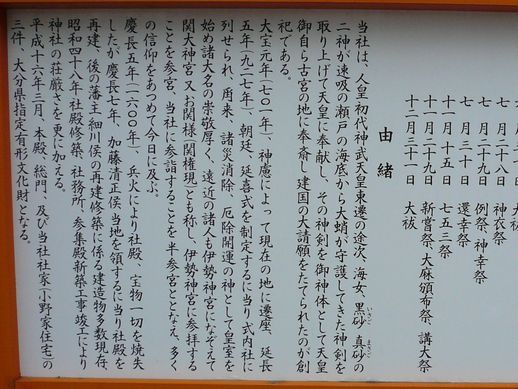 十二月三十一日　大祓
十一月二十三日　新嘗祭、大麻頒布祭、講大祭
十一月十五日　七五三祭
七月三十一日　還幸祭
七月二十九日　例祭、神幸祭
七月二十八日　神衣祭
七月三十日　大祓
由緒
当社は、人皇初代神武天皇東遷の途次、海女、黒砂 真砂の
いさご　まさご
二神が速吸の瀬戸の海底から大蛸が守護してきた神剣を
取り上げて天皇に奉献し、その神剣を御神体として天皇
御自ら古宮の地に奉斎し建国の大請願をたてられたのが創
祀である。
大宝元年(七〇一年)、神慮によって現在の地に遷座、延長
五年(九二七年)、朝廷、延喜式を制定するに当り式内社に
列せられ、爾来、諸災消除、厄除開運の神として皇室を
始め諸大名の崇敬厚く、遠近の諸人も伊勢神宮になぞえて
関大神宮 又お関様(関権現)とも称し、伊勢神宮に参拝する
ことを参宮、当社に参詣することを半参宮ととなえ、多く
の信仰をあつめて今日に及ぶ。
慶長五年(一六〇〇年)、兵火により社殿、宝物一切を焼失
したが、慶長七年、加藤清正侯、当地を領するに当り社殿を
再建、後の藩主細川侯の再建修築に係る建造物多数現存、
昭和四十八年 社殿修築、社務所、参集殿新築工事竣工により
神社の荘厳さを更に加える。
平成十六年三月、本殿、総門、及び当社社家(小野家住宅)の
三件、大分県指定有形文化財となる。